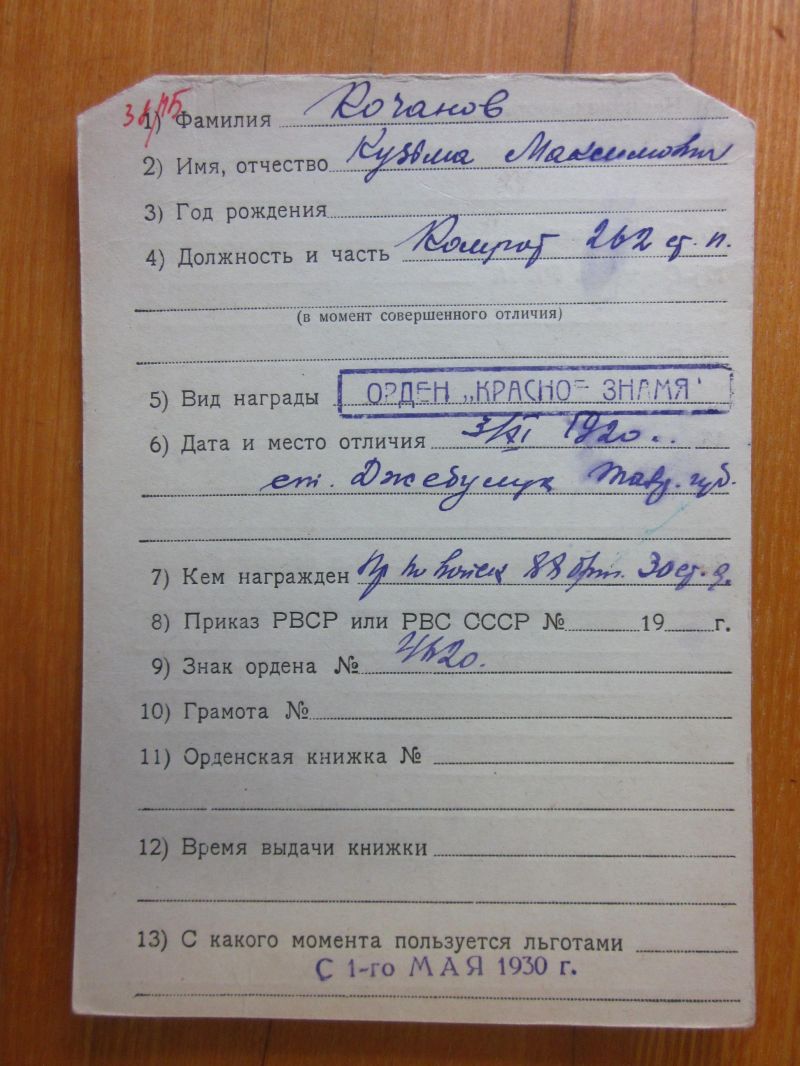 1) Фамилия Кочанов
2) Имя, отчество Кузьма Максимович
3) Год рождения
4) Должность и часть Комрот 262 ст. п.
(в момент совершенного отличия)
5) Вид награды ОРДЕН „КРАСНОЕ ЗНАМЯ"
6) Дата и место отличия 3/XI 1920..
ст. Джебулук Тавр. губ.
7) Кем награжден Пр по войск 88 бриг. 30 ст. д.
8) Приказ РВСР или РВС СССР № 19 г.
9) Знак ордена №
10) Грамота №
11) Орденская книжка №
12) Время выдачи книжки
13) С какого момента пользуется льготами
С 1-го МАЯ 1930 г.